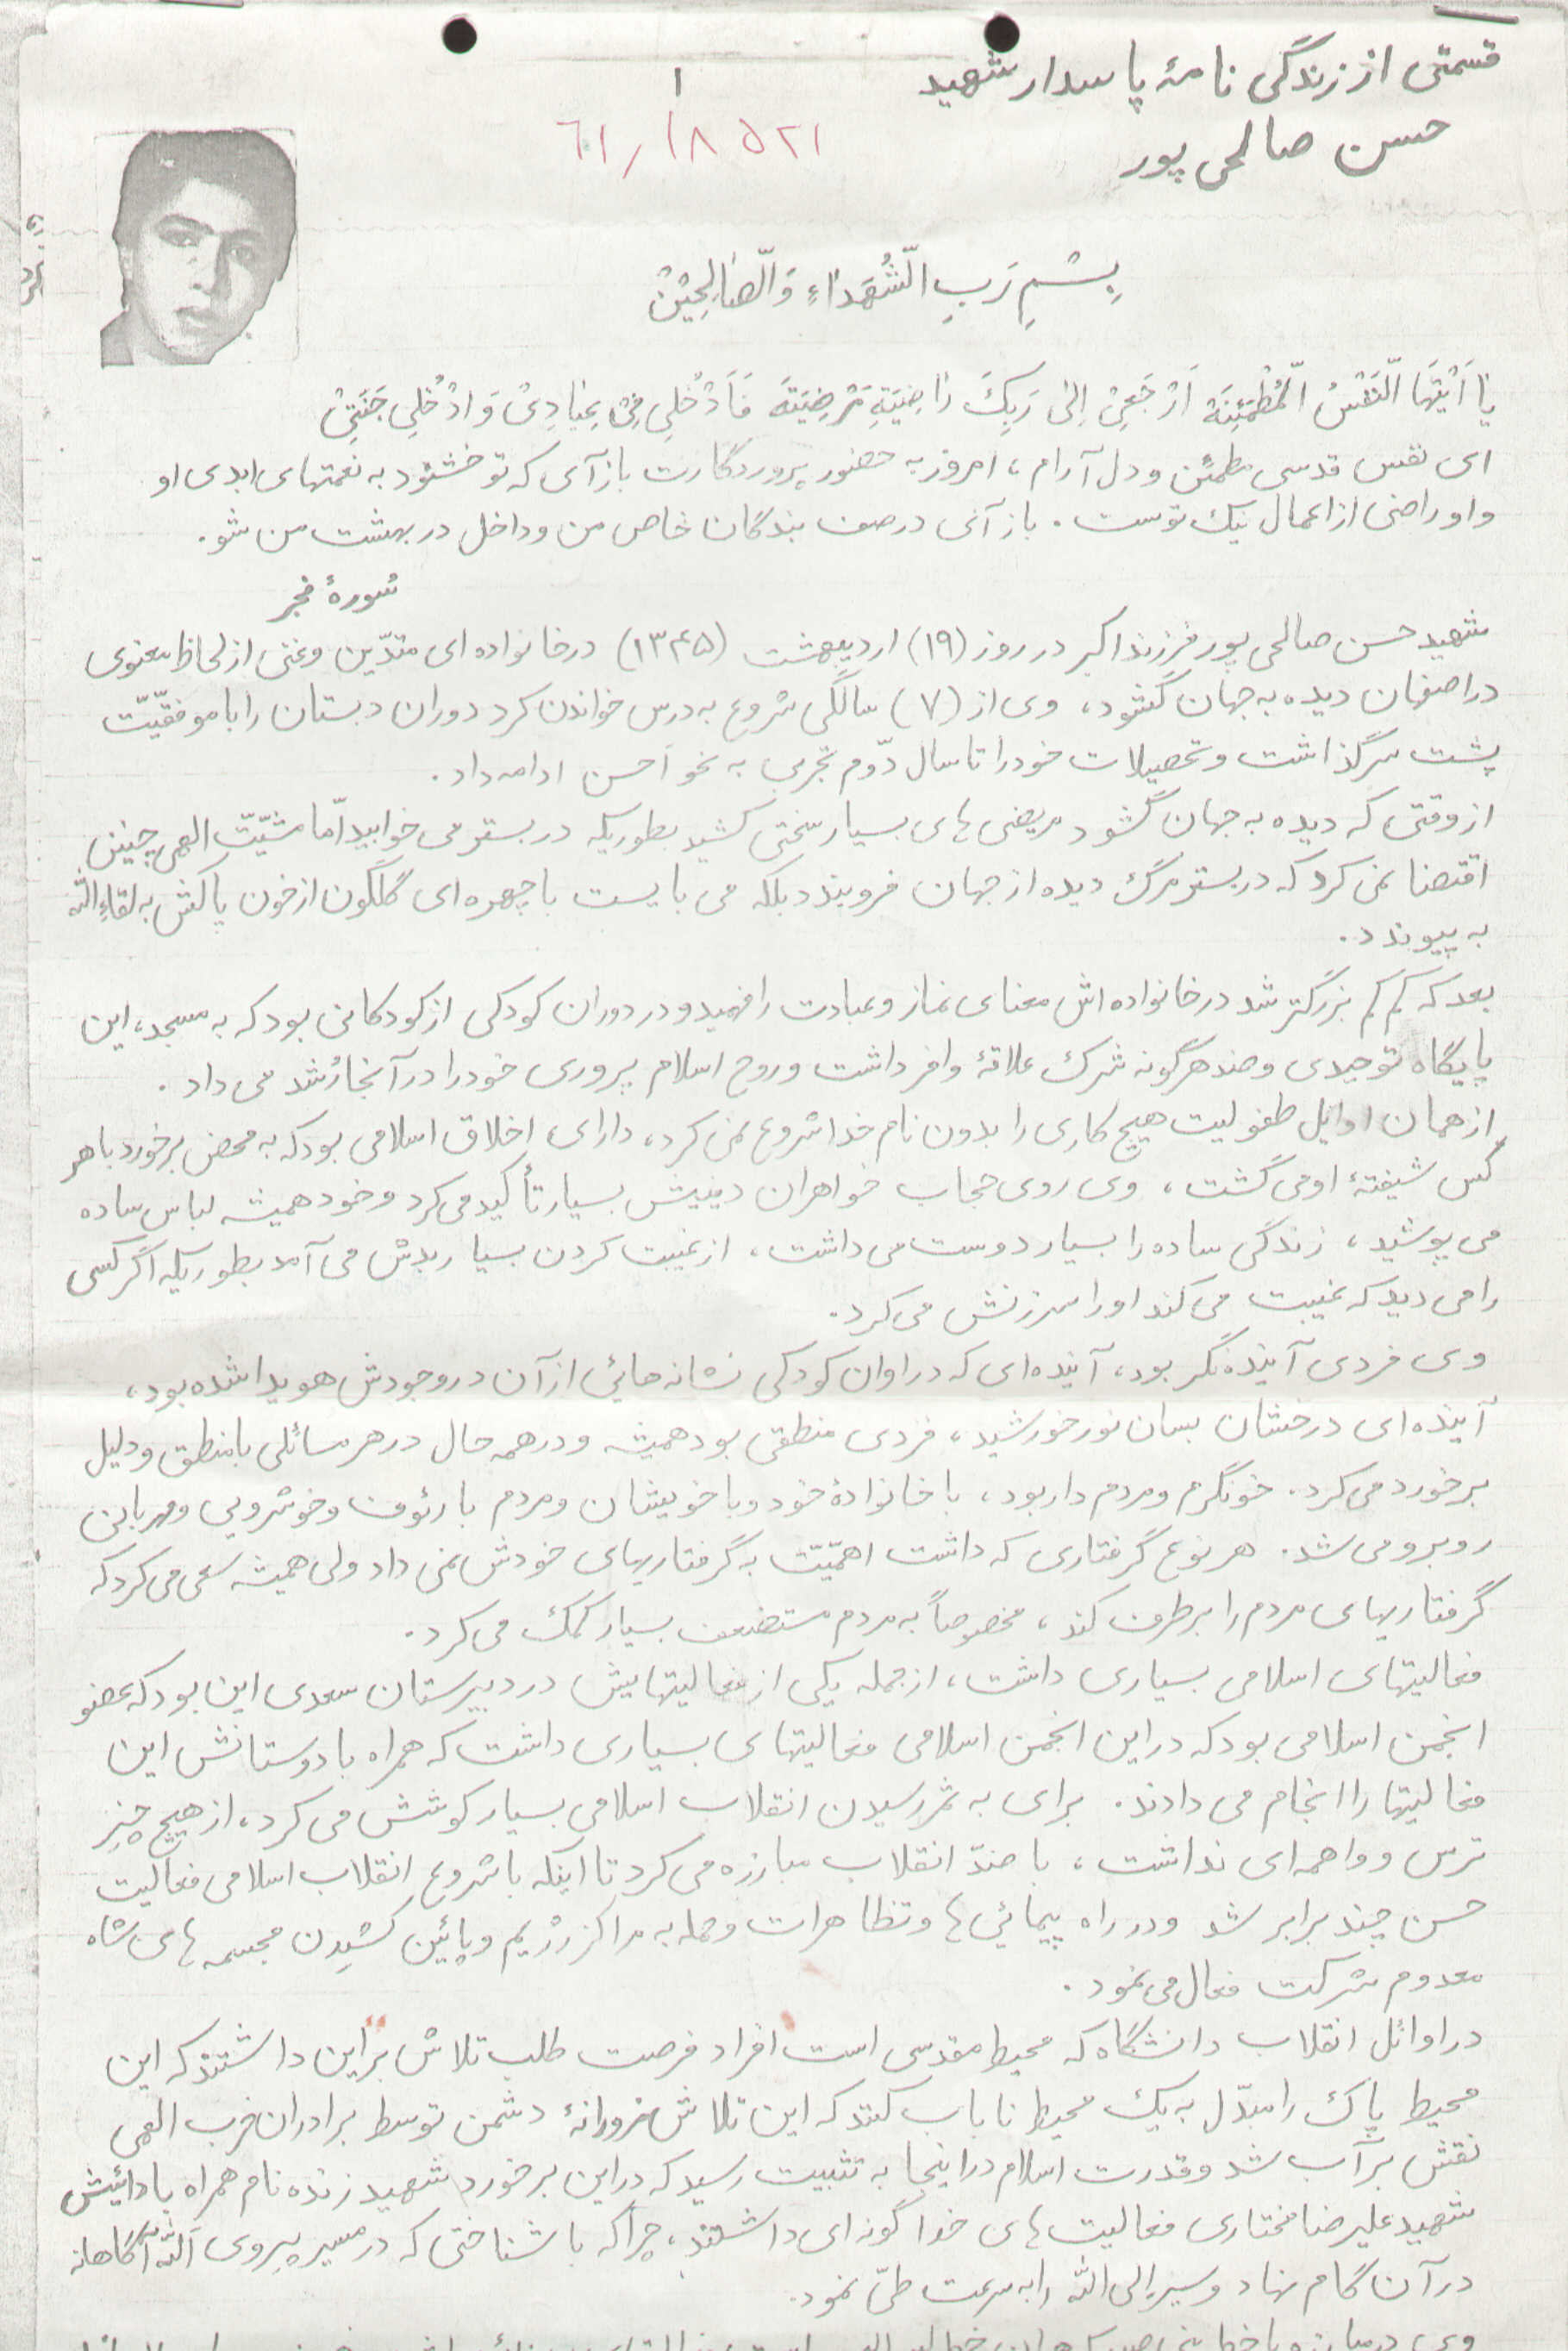 قسمتی از زندگی نامهٔ پاسدار شهید
حسن صالحی پور
۱
۶۱/۱۸۵۲۱
بِسْمِ رَبِ الّشُهَداٰءِ وَالّصٰالِحیْنْ
یٰا اَیَتُهَا الَّنَفْسُ الّمُطْمَئِنَة اَرْجَعیْ اِلیٰ رَبِکَ رٰاضِیَةِ مَرْضِیَتَه فَاَدْخُلِی فیْ عِبٰادِیْ وَادْخُلِی جَنَتیْ
ای نفس قدسی مطمئن و دل آرام ، امروز به حضور پروردگارت باز آی که تو خشنود به نعمتهای ابدی او
و او راضی از اعمال نیک توست . باز آئی در صف بندگان خاص من و داخل در بهشت من شو.
سُورهٔ فجر
شهید حسن صالحی پور فرزند اکبر در روز (۱۹) اردیبهشت (۱۳۴۵) در خانواده ای متدّین و غنی از لحاظ معنوی
در اصفهان دیده به جهان گشود ، وی از (۷) سالگی شروع به درس خواندن کرد دوران دبستان را با موفقیّت
پشت سرگذاشت و تحصیلات خود را تا سال دّوم تجربی به نحو اَحسن ادامه داد .
از وقتی که دیده به جهان گشود مریضی های بسیار سختی کشید بطوریکه در بستر می خوابید اّما مشیّت الهی چنین
اقتضا نمی کرد که در بستر مرگ دیده از جهان فروبندد بلکه می بایست با چهره ای گلگون از خون پاکش به لقاءِ الله
به پیوندد .
بعد که کم کم بزرگتر شد در خانواده اش معنای نماز و عبادت را فهمید و در دوران کودکی از کودکانی بود که به مسجد ، این
پایگاه توحیدی و ضد هرگونه شرک علاقهٔ وافر داشت و روح اسلام پروری خود را در آنجا رُشد می داد .
از همان اوایل طفولیت هیچ کاری را بدون نام خدا شروع نمی کرد ، دارای اخلاق اسلامی بود که به محض برخورد با هر
کس شیفتهٔ او می گشت ، وی روی حجاب خواهران دینیش بسیار تأکید می کرد و خود همیشه لباس ساده
می پوشید ، زندگی ساده را بسیار دوست می داشت ، از غیبت کردن بسیار بدش می آمد بطوریکه اگر کسی
را می دید که غیبت می کند او را سرزنش می کرد .
وی فردی آینده نگر بود ، آینده ای که در اوان کودکی نشانه هائی از آن در وجودش هویدا شده بود ،
آینده ای درخشان بسان نور خورشید ، فردی منطقی بود همیشه و در همه حال در هر مسائلی با منطق و دلیل
برخورد می کرد . خونگرم و مردم دار بود ، با خانوادهٔ خود و با خویشان و مردم با رئوف و خوشرویی و مهربانی
روبرو می شد . هر نوع گرفتاری که داشت اهمیّت به گرفتاریهای خودش نمی داد ولی همیشه سعی می کرد که
گرفتاریهای مردم را بر طرف کند ، مخصوصاً به مردم مستضعف بسیار کمک می کرد .
فعالیتهای اسلامی بسیاری داشت ، از جمله یکی از فعالیتهایش در دبیرستان سعدی این بود که عضو
انجمن اسلامی بود که در این انجمن اسلامی فعالیتهای بسیاری داشت که همراه با دوستانش این
فعالیتها را انجام می دادند . برای به ثمر رسیدن انقلاب اسلامی بسیار کوشش می کرد ، از هیچ چیز
ترس و واهمه ای نداشت ، با ضدّ انقلاب مبارزه می کرد تا اینکه با شروع انقلاب اسلامی فعالیت
حسن چند برابر شد و در راه پیمائی ها و تظاهرات و حمله به مراکز رژیم و پائین کشیدن مجسمه های شاه
معدوم شرکت فعال می نمود .
در اوائل انقلاب دانشگاه که محیط مقدسی است افراد فرصت طلب تلاش بر این داشتند که این
محیط پاک را مبدّل به یک محیط ناباب کنند که این تلاش مزورانهٔ دشمن توسط برادران حزب الهی
نقش بر آب شد و قدرت اسلام در اینجا به تثبیت رسید که در این برخورد شهید زنده نام همراه با دائیش
شهید علیرضا مختاری فعالیت های خداگونه ای داشتند ، چرا که با شناختی که در مسیر پیروی اَلله آگاهانه
در آن گام نهاد و سیرِ الی الله را به سرعت طیّ نمود .